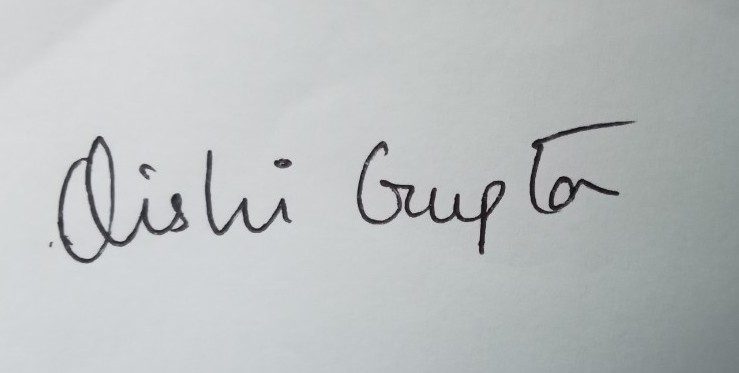 Oishi Gupta